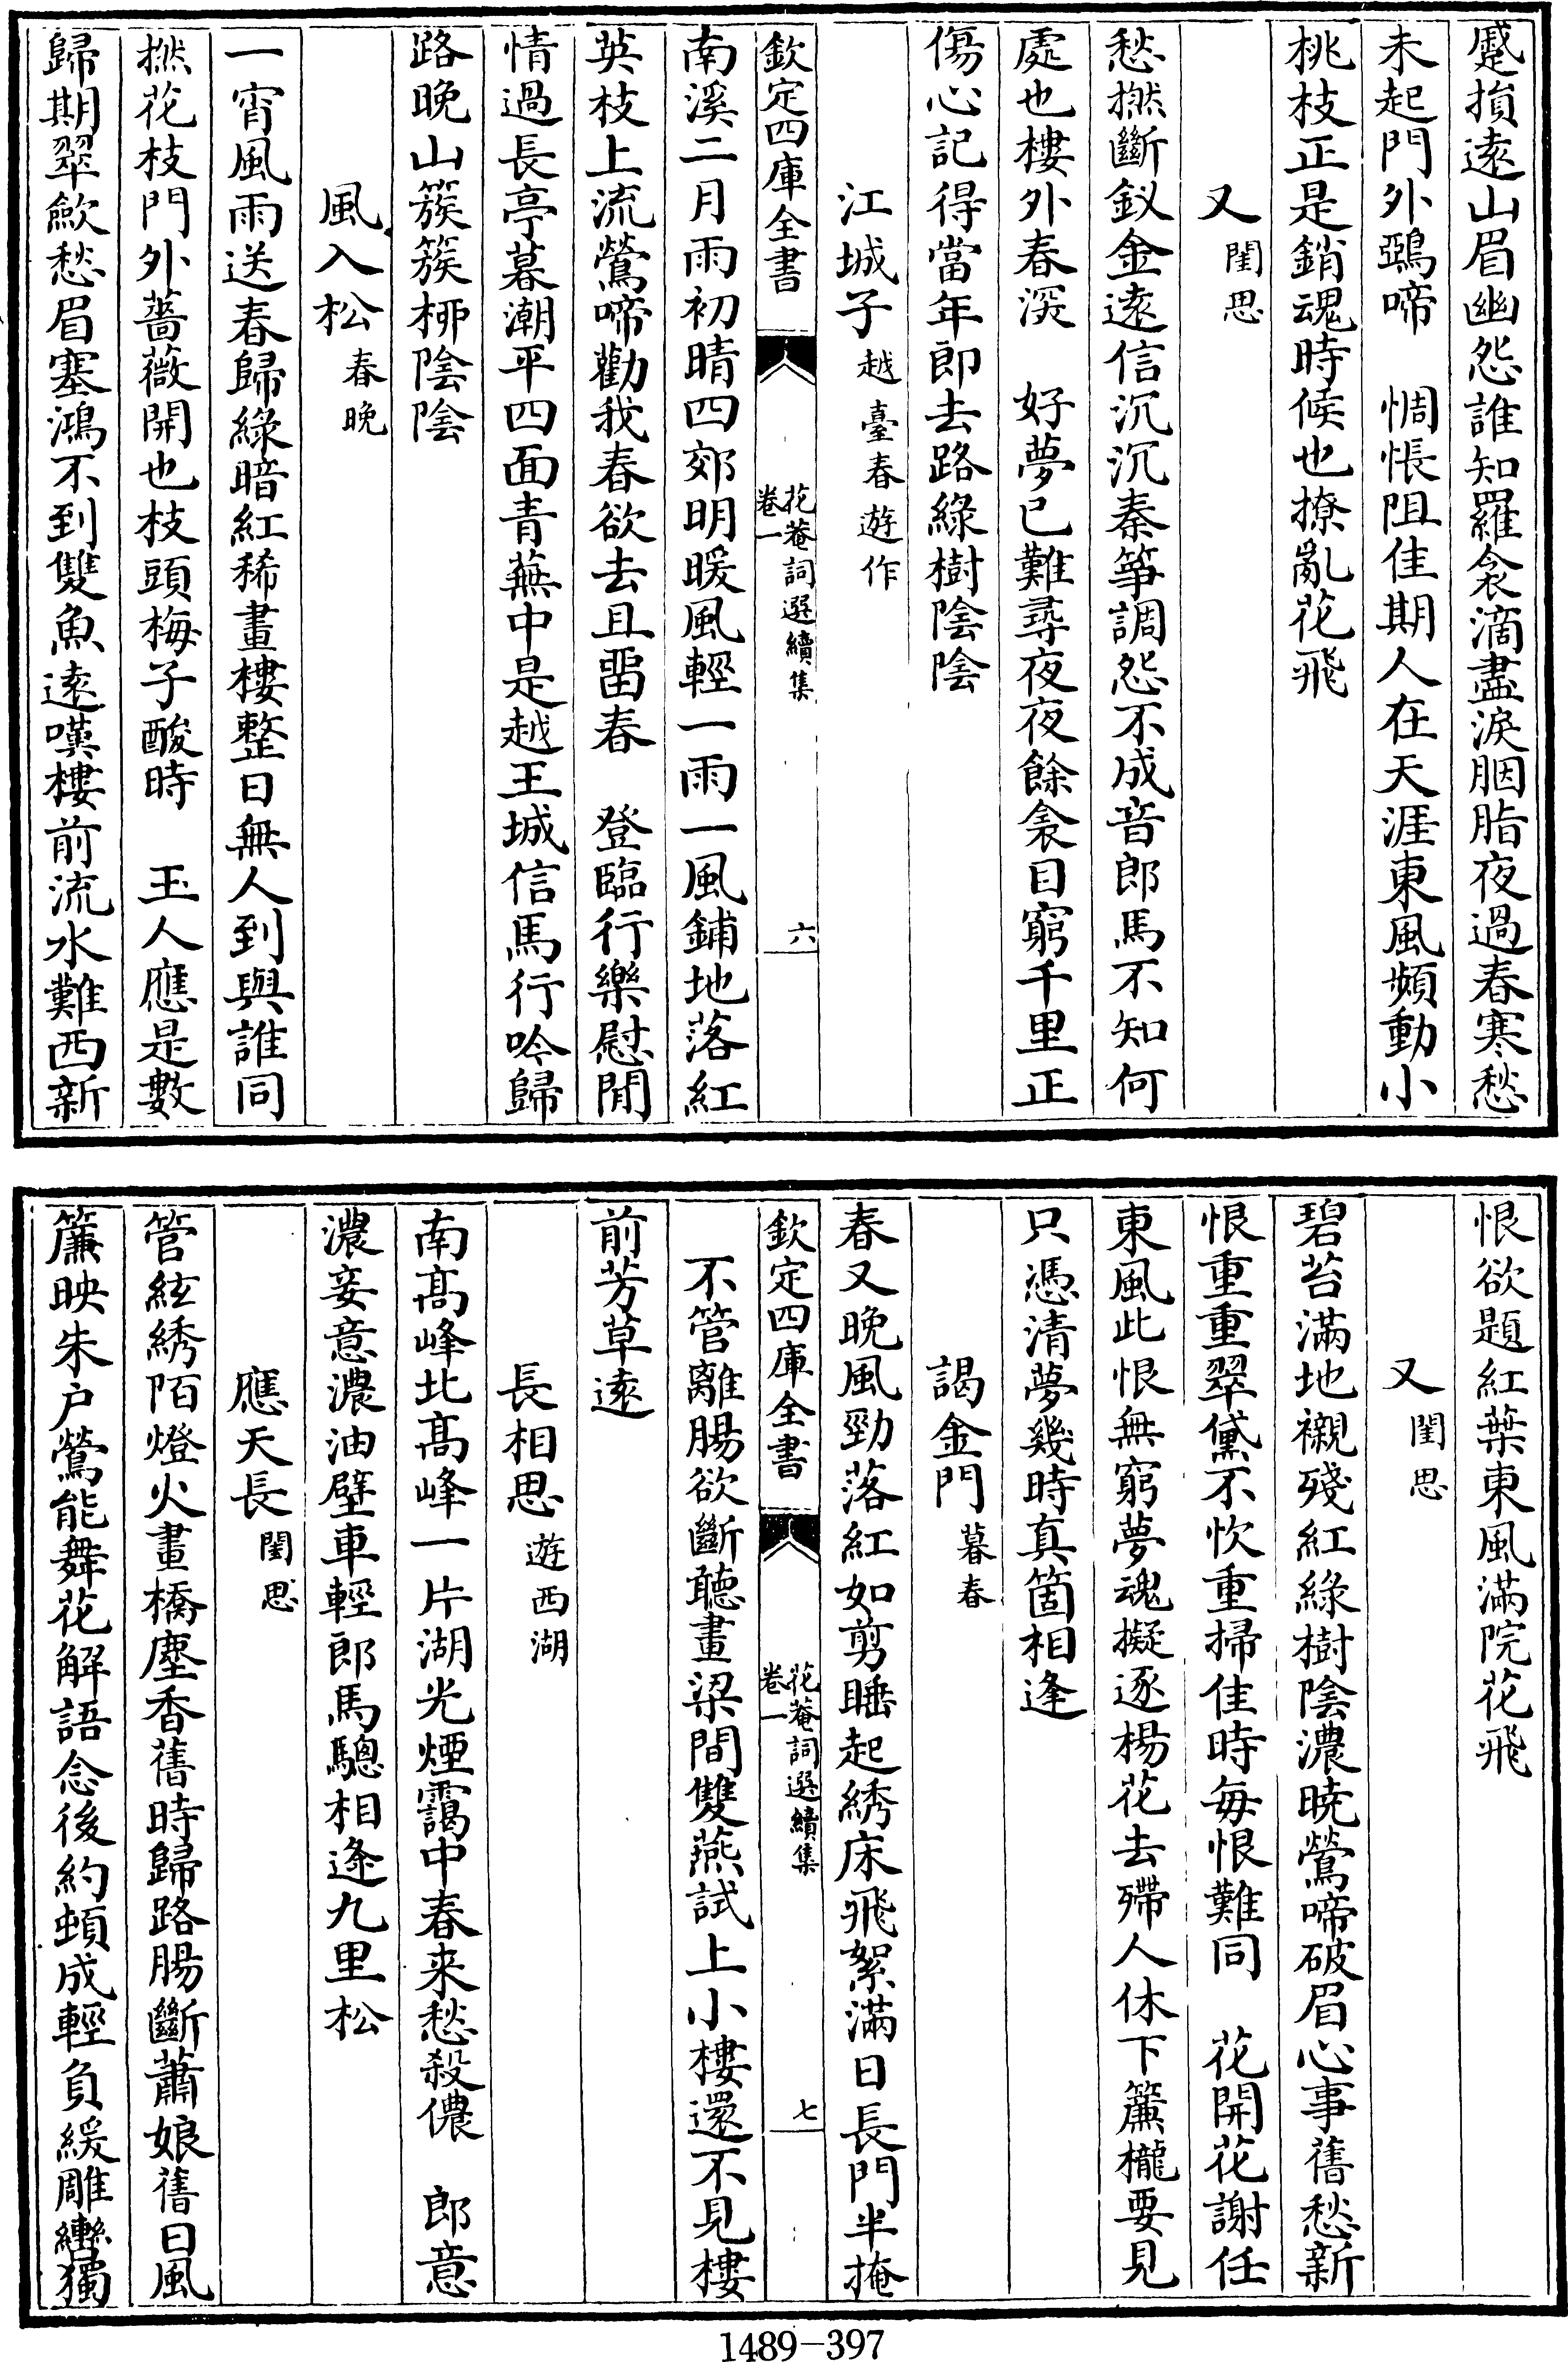 蹙損遠山眉幽怨誰知羅衾滴盡淚胭脂夜過春寒愁
未起門外鵶啼　惆悵阻佳期人在天涯東風頻動小
桃枝正是銷魂時候也撩亂花飛
又閨思
愁撚斷釵金遠信沉沉秦箏調怨不成音郎馬不知何
處也樓外春深　好夢已難尋夜夜餘衾目窮千里正
傷心記得當年郎去路綠樹陰陰
江城子越臺春遊作
欽定四庫全書　花菴詞選續集卷一　六
南溪二月雨初晴四郊明暖風輕一雨一風鋪地落紅
英枝上流鶯啼勸我春欲去且畱春　登臨行樂慰閒
情過長亭暮潮平四面青蕪中是越王城信馬行吟歸
路晚山簇簇栁陰陰
風入松春晚
一宵風雨送春歸綠暗紅稀畫樓整日無人到與誰同
撚花枝門外薔薇開也枝頭梅子酸時　玉人應是數
歸期翠歛愁眉塞鴻不到雙魚遠嘆樓前流水難西新
恨欲題紅葉東風滿院花飛
又閨思
碧苔滿地襯殘紅綠樹陰濃曉鶯啼破眉心事舊愁新
恨重重翠黛不忺重掃佳時每恨難同　花開花謝任
東風此恨無窮夢魂擬逐楊花去殢人休下簾櫳要見
只憑清夢幾時真箇相逢
謁金門暮春
春又晚風勁落紅如剪睡起綉床飛絮滿日長門半掩
欽定四庫全書　花菴詞選續集卷一　七
不管離腸欲斷聽畫梁間雙燕試上小樓還不見樓
前芳草遠
長相思遊西湖
南髙峰北髙峰一片湖光煙靄中春来愁殺儂　郎意
濃妾意濃油壁車輕郎馬驄相逢九里松
應天長閨思
管絃綉陌燈火畫橋塵香舊時歸路腸斷蕭娘舊日風
簾映朱户鶯能舞花解語念後約頓成輕負緩雕轡獨
1489—397